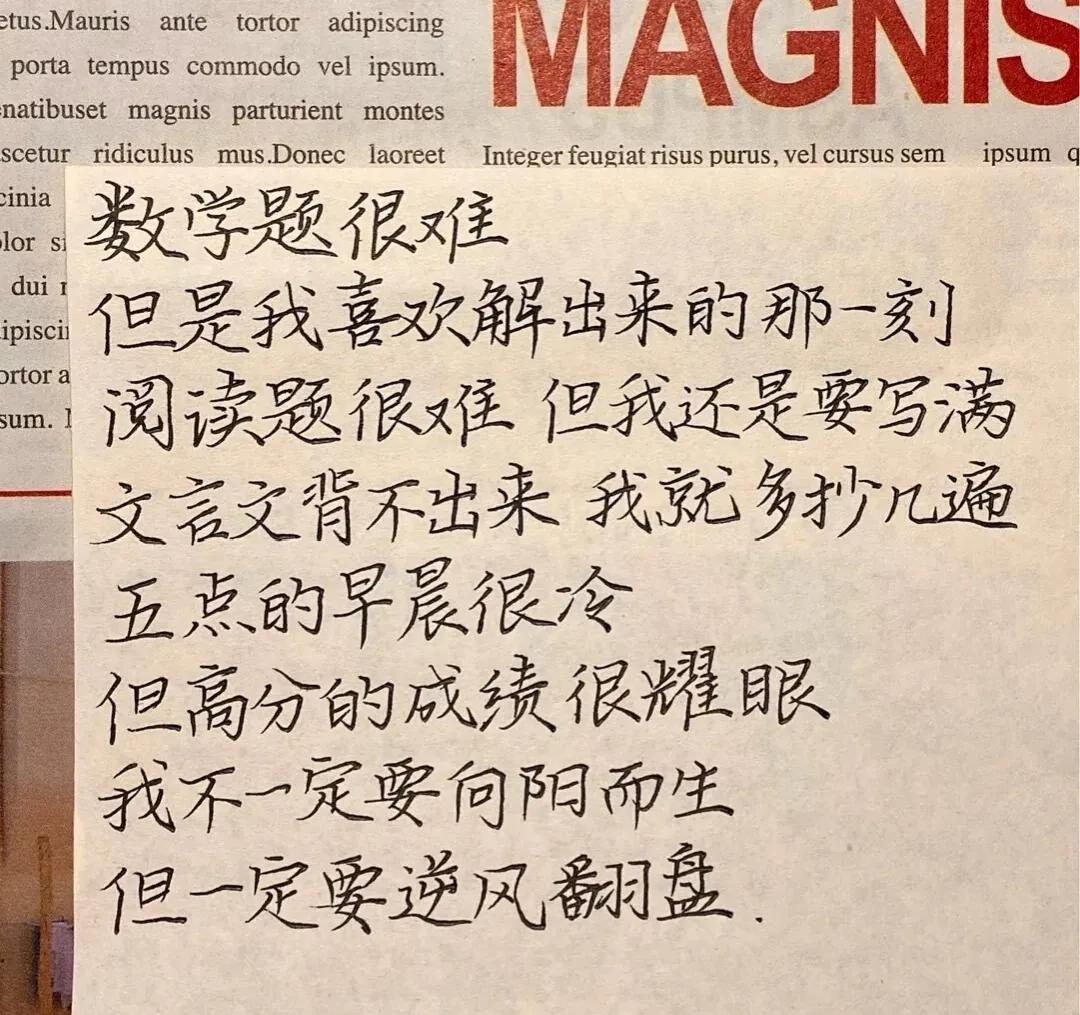 etus.Mauris ante tortor adipiscing
porta tempus commodo vel ipsum.
enatibuset magnis parturient montes
scetur ridiculus mus.Donec laoreet
cinia
dui
sum.
MAGNIS
Integer feugiat risus purus, vel cursus sem ipsum q
数学题很难
但是我喜欢解出来的那一刻
阅读题很难 但我还是要写满
文言文背不出来 我就多抄几遍
五点的早晨很冷
但高分的成绩很耀眼
我不一定要向阳而生
但一定要逆风翻盘.